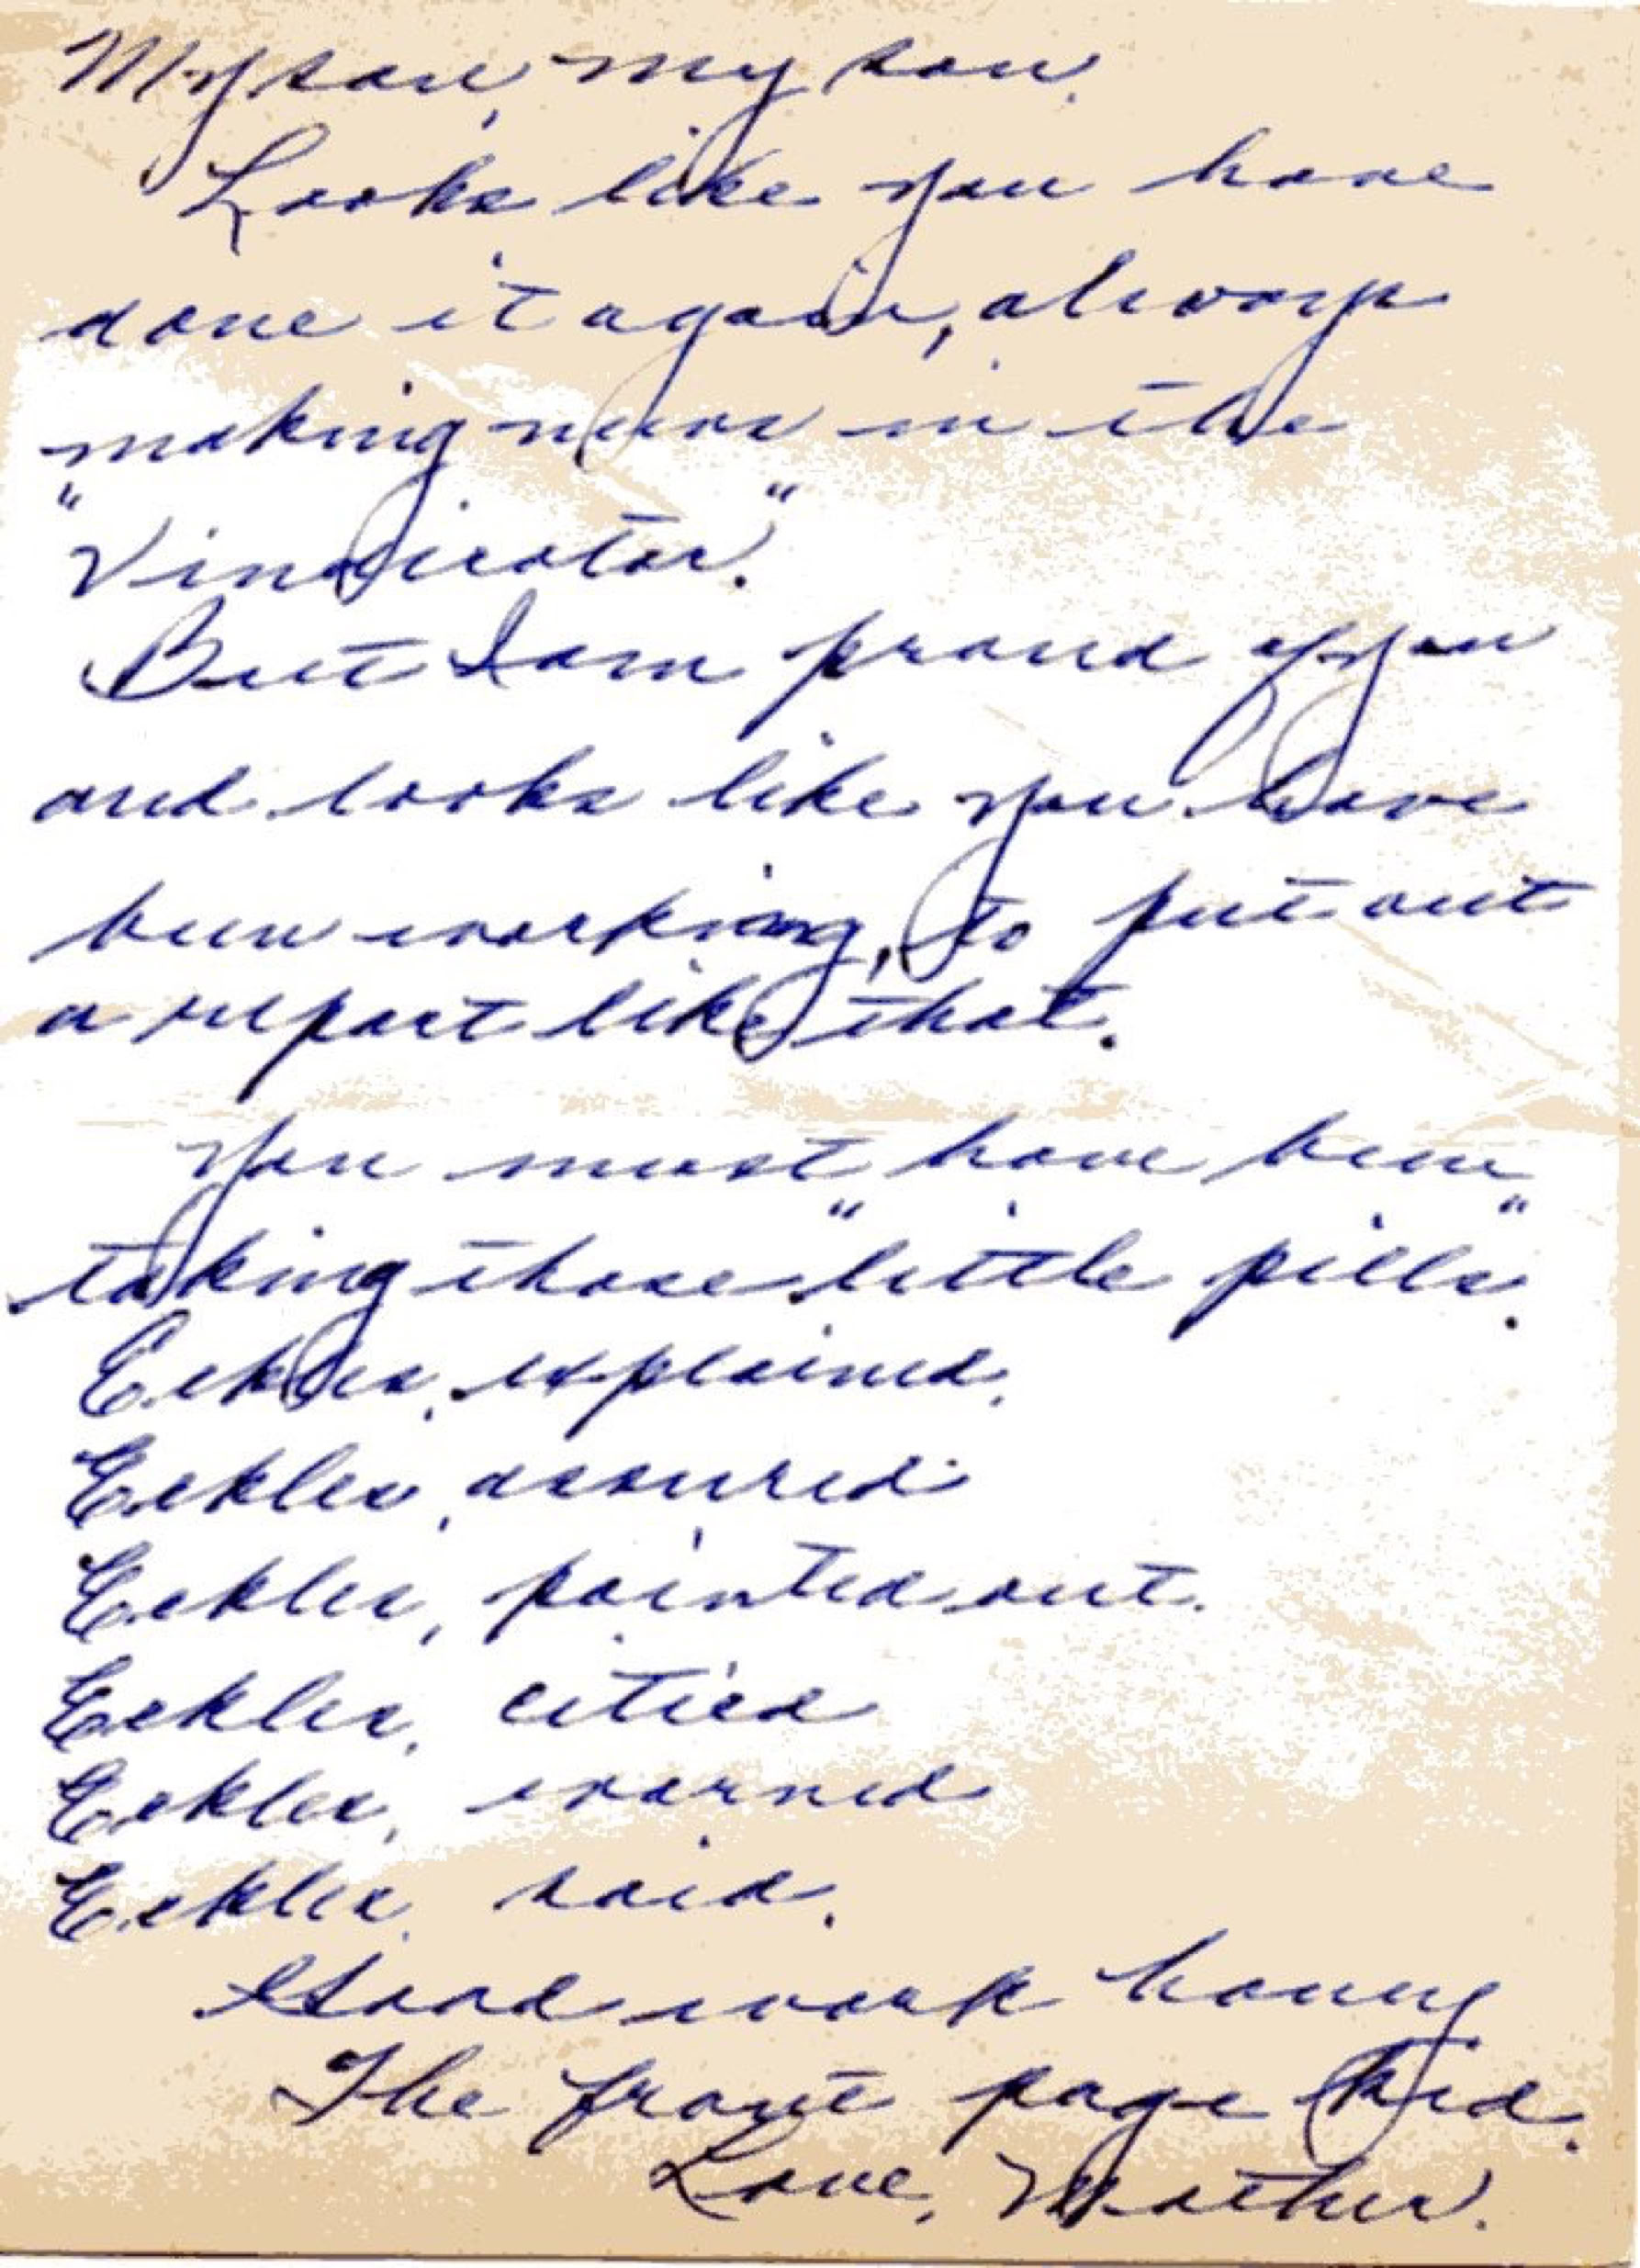 My son, my son.
Looks like you have
done it again, always
making news in the
"Vindicator."
But I am proud of you
and looks like you have
been working, to put out
a report like that.
You must have been
taking those "little pills".
Eckles, explained.
Eckles, assured.
Eckles, pointed out.
Eckles, citied
Eckles, warned
Eckles, said.
Good work honey
The front page kid.
Love, Mother.